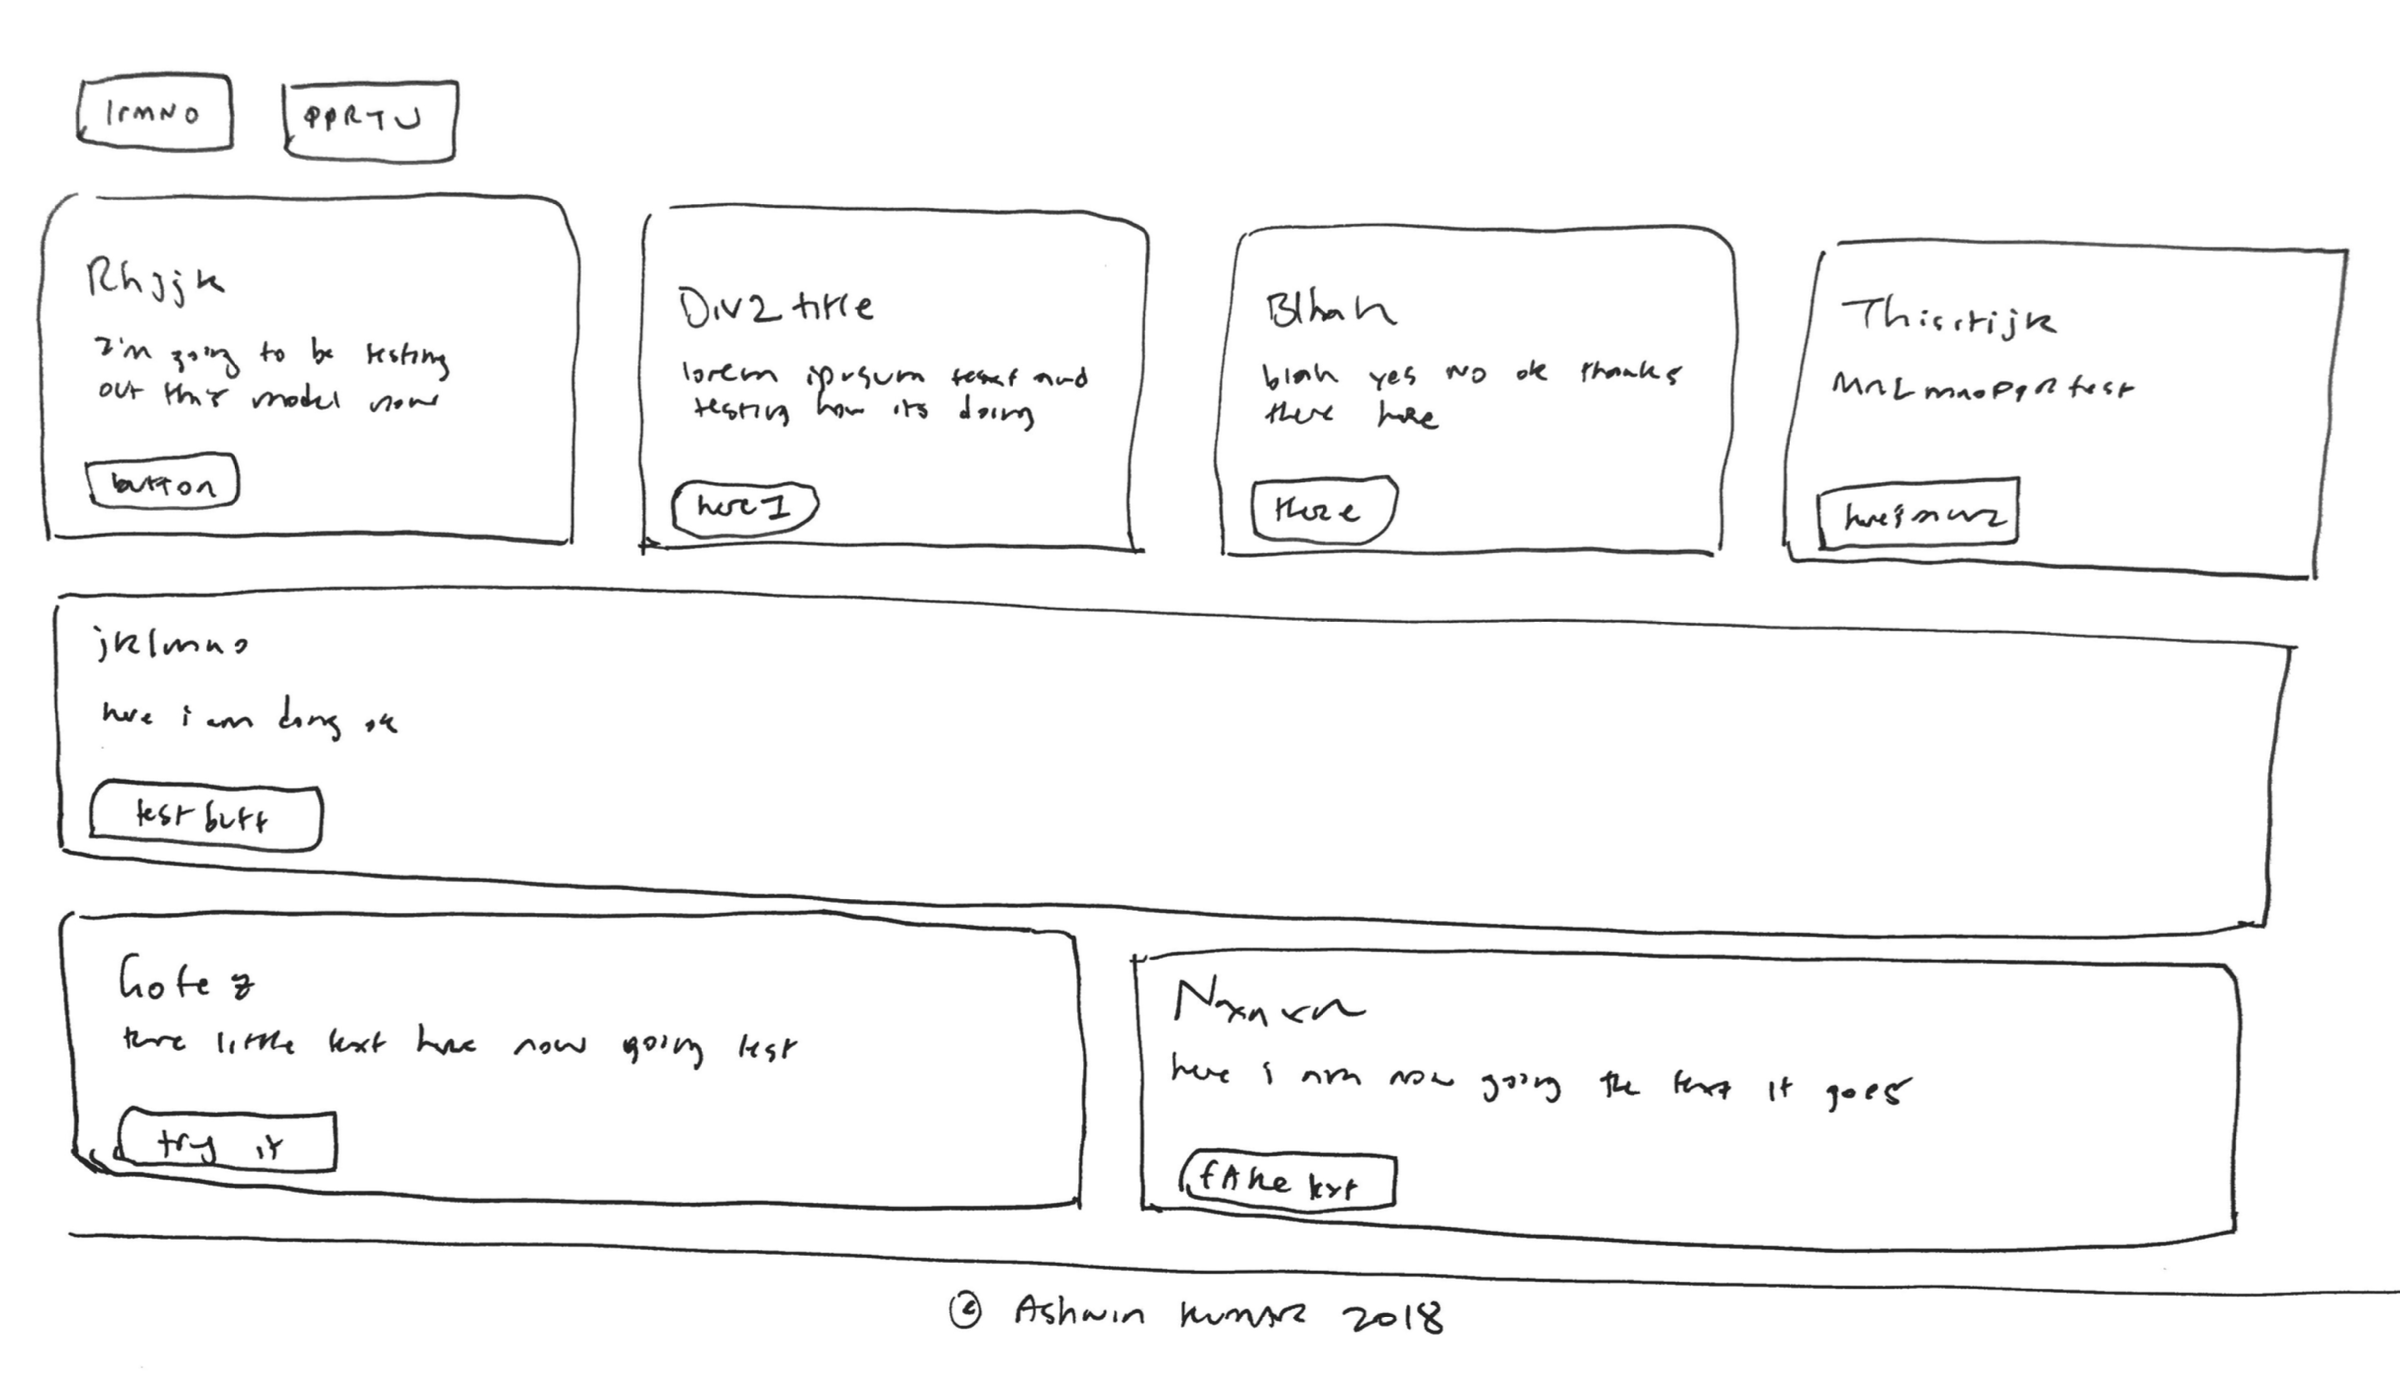 lrmNO
PPRTU
Rhjjk
I'm going to be testing
out this model now
button
Div2 title
lorem ipusum text and
testing how its doing
here I
Blhah
blah yes no ok thanks
there here
there
Thisrtijk
MnLmnoPqRtest
jklmno
here i am doing ok
test butt
here little text here now going test
try it
here i am now going the text it goes
fAke text
© Ashwin Kumar 2018